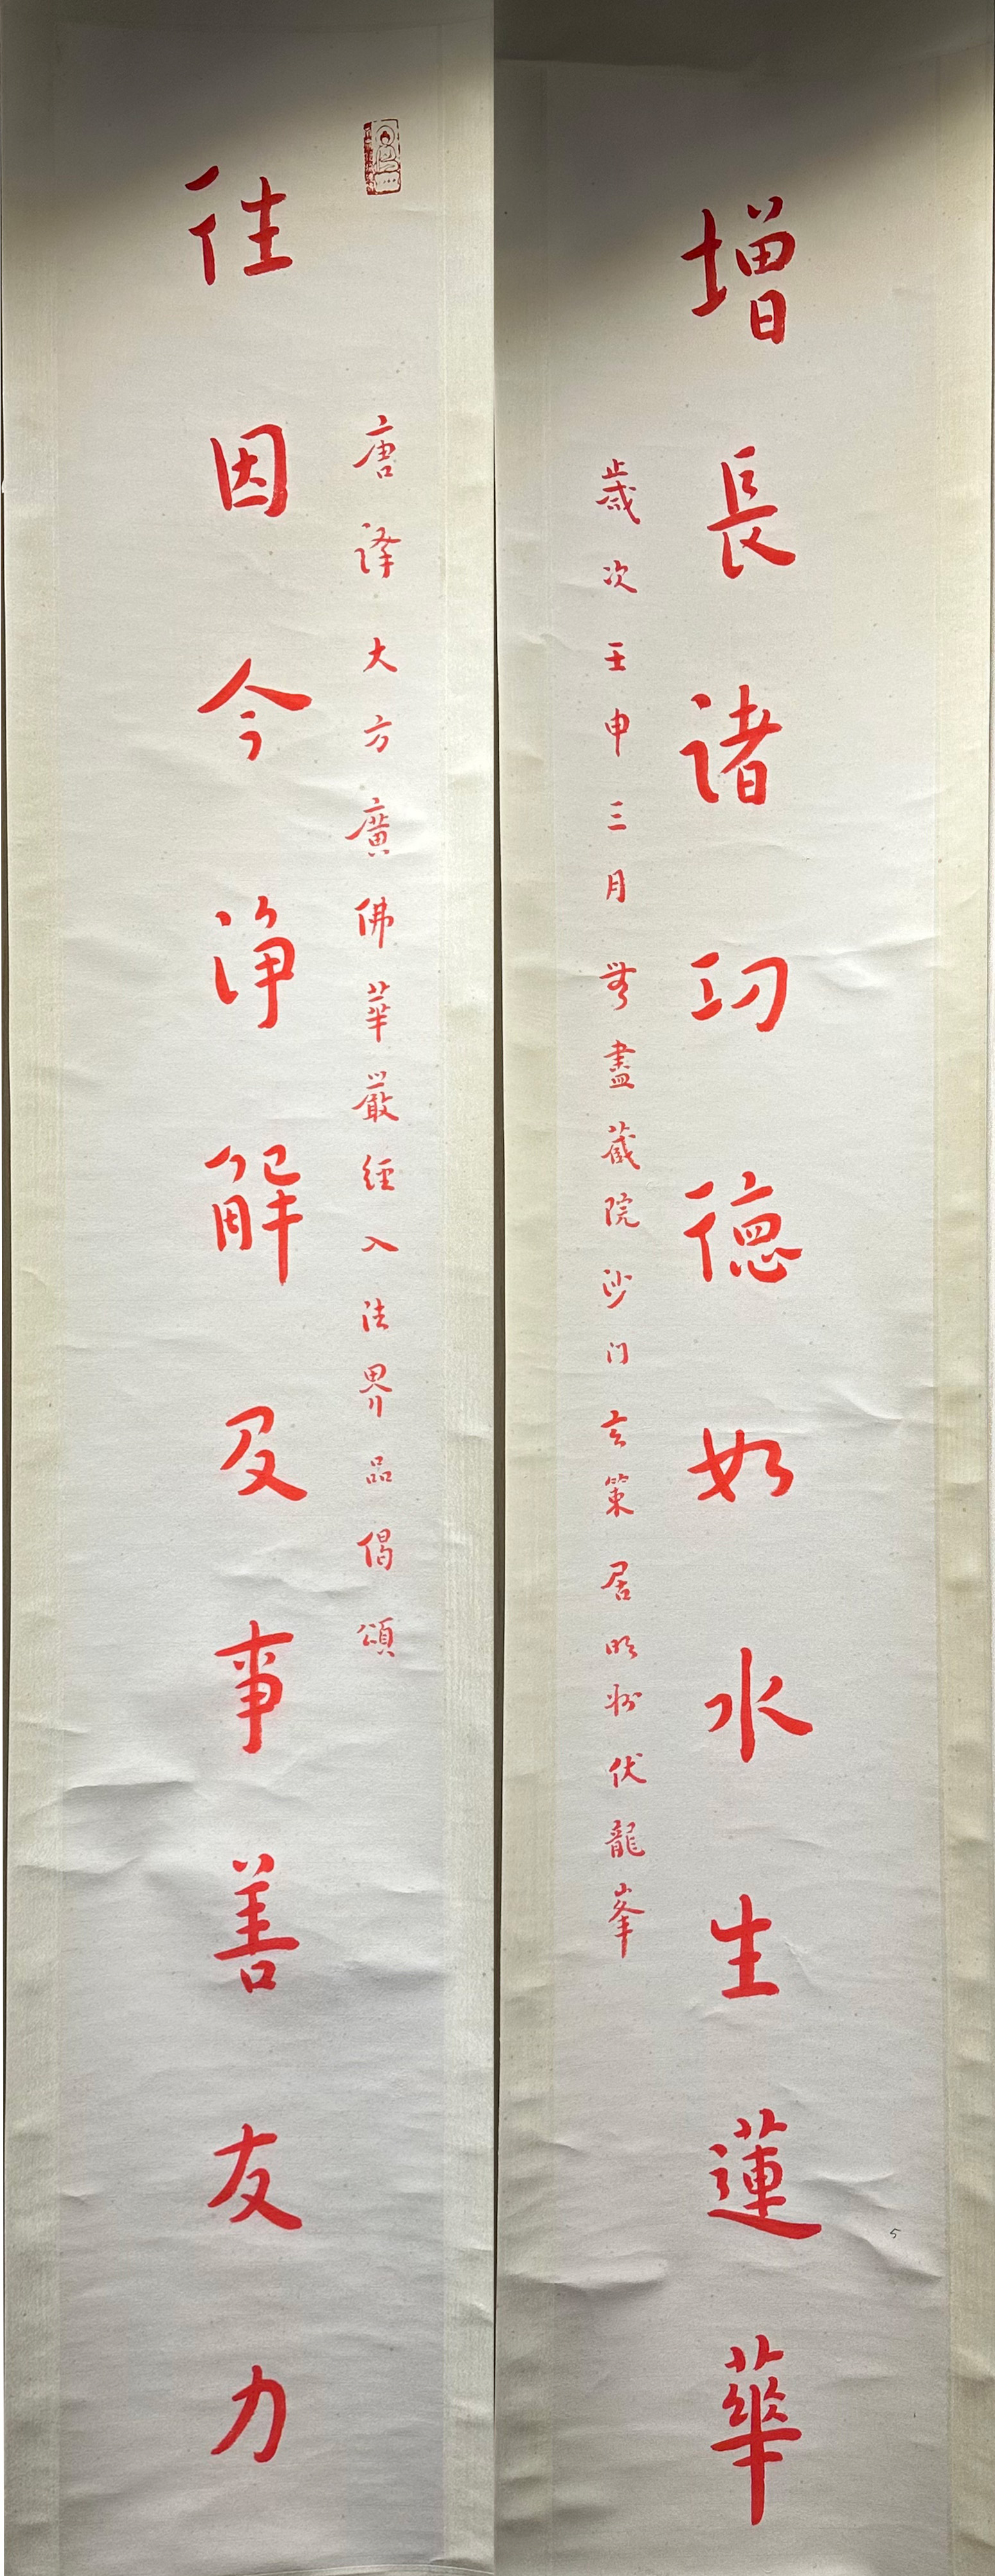 唐譯大方廣佛華嚴經入法界品偈頌
往因今淨解及事善友力
增長諸功德如水生蓮華
歲次壬申三月無盡藏院沙門玄策居明州伏龍峯